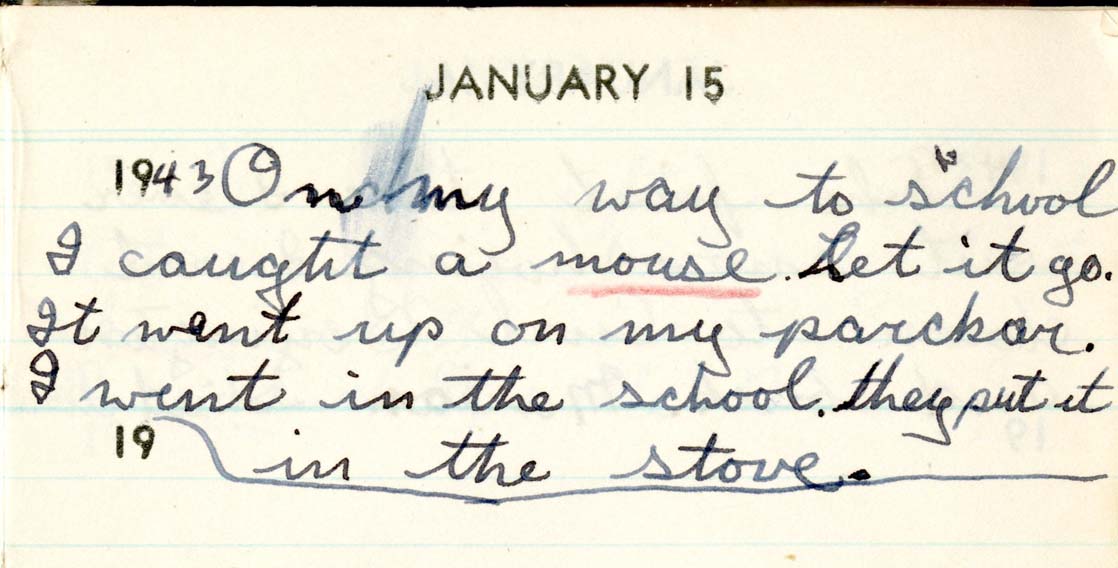 JANUARY 15
1943 On my way to school
I caught a mouse. Let it go.
It went up on my parckar.
I went in the school. they put it
19 in the stove.